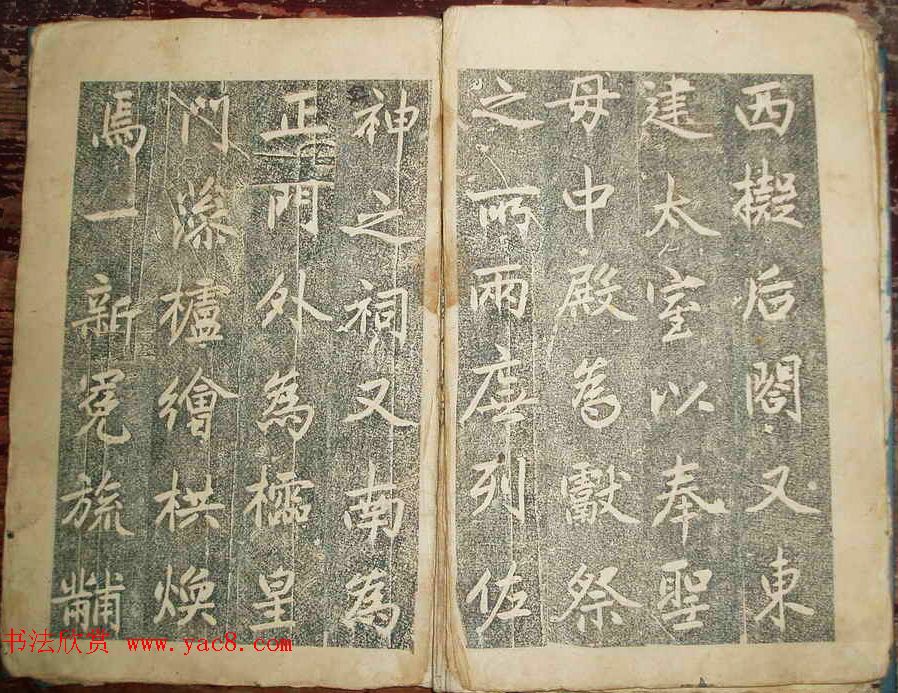 西擬后閣又東
建太室以奉聖
母中殿為獻祭
之所兩廡列佐
神之祠又南為
正門外為櫺星
門漆櫨繪栱煥
焉一新冕旒黼
书法欣赏 www.yac8.com